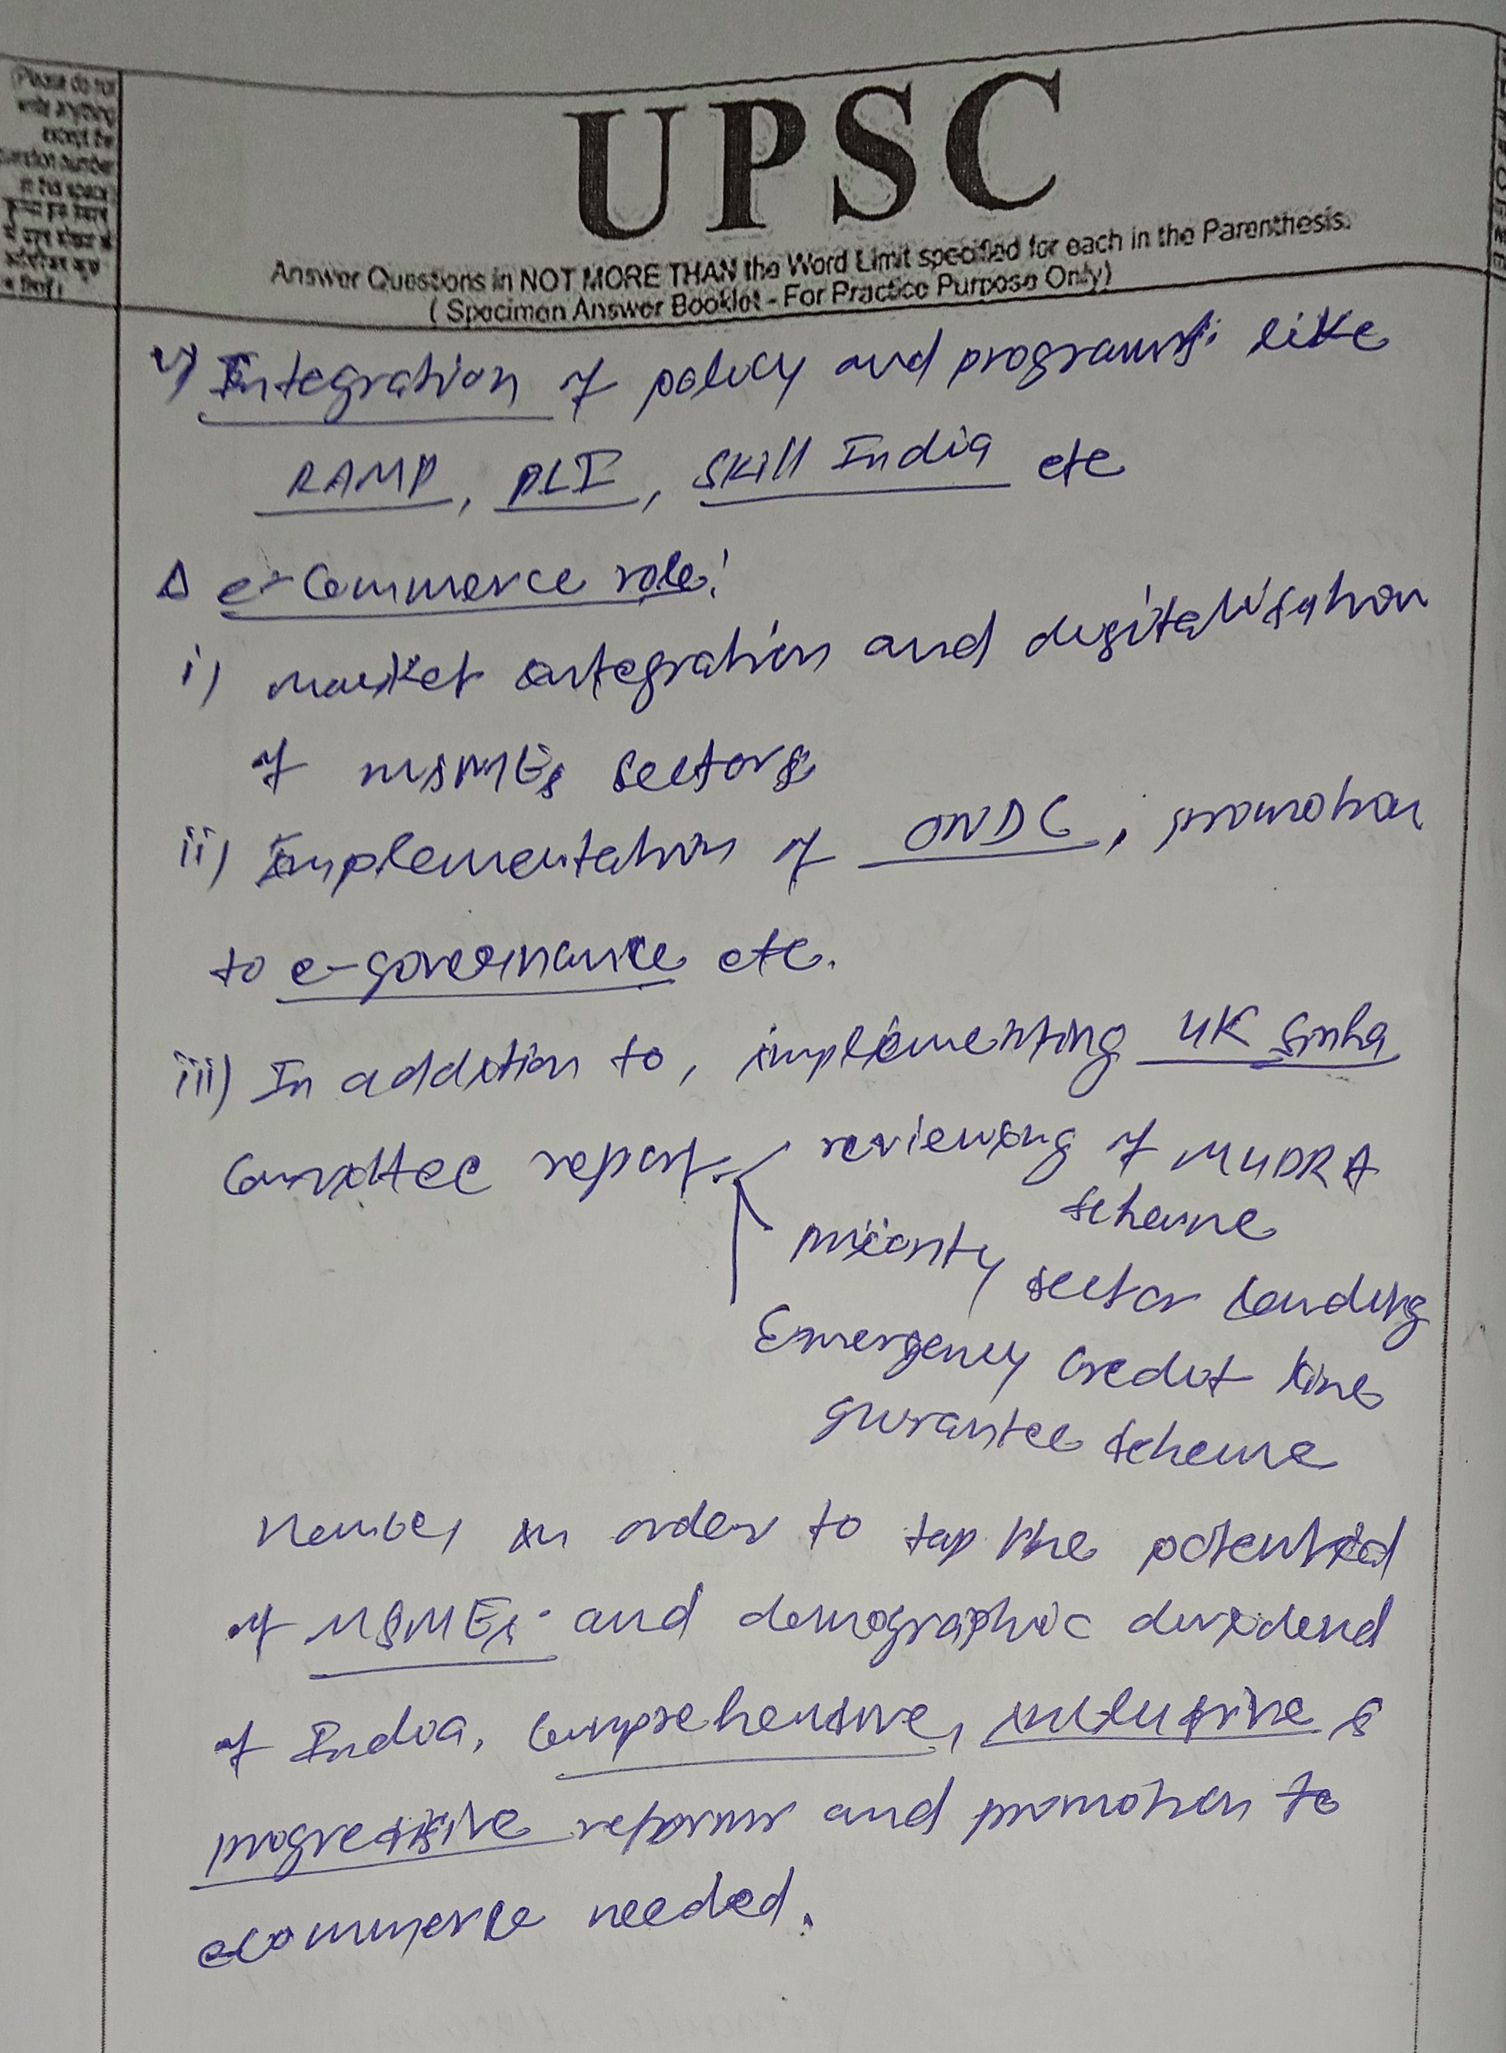 (Please do not
write anything
except the
question number
in this space
UPSC
Answer Questions in NOT MORE THAN the Word Limit specified for each in the Parenthesis.
( Specimen Answer Booklet - For Practice Purpose Only)
v) Integration of policy and programs like
RAMP, PLI, Skill India etc
Δ e-Commerce role:
i) market integration and digitalisation
of MSMEs sectors
ii) Implementation of ONDC, promotion
to e-governance etc.
iii) In addition to, implementing UK Sinha
Committee report
reviewing of MUDRA
scheme
priority sector lending
Emergency credit line
gurantee scheme
Hence, in order to tap the potential
of MSMEs and demographic dividend
of India, comprehensive, inclusive &
progressive reforms and promotion to
ecommerce needed.